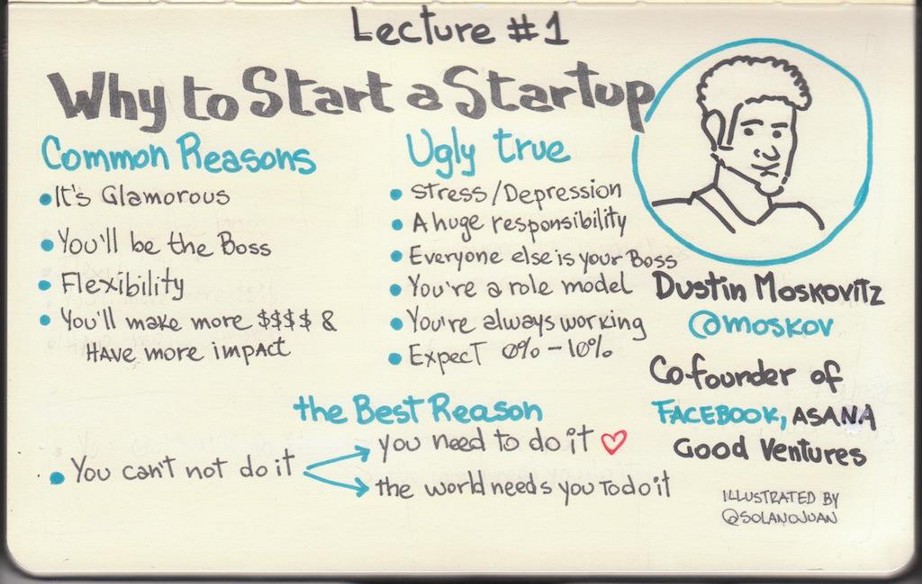 Lecture #1
Why to Start a Startup
Common Reasons
• It's Glamorous
• You'll be the Boss
• Flexibility
• You'll make more $$$$ &
Have more impact
Ugly true
• stress/Depression
• A huge responsibility
• Everyone else is your Boss
• You're a role model
• You're always working
• Expect 0% - 10%
Dustin Moskovitz
@moskov
Cofounder of
FACEBOOK, ASANA
Good Ventures
the Best Reason
• You can't not do it
you need to do it ♡
the world needs you to do it
ILLUSTRATED BY
@SOLANOJUAN